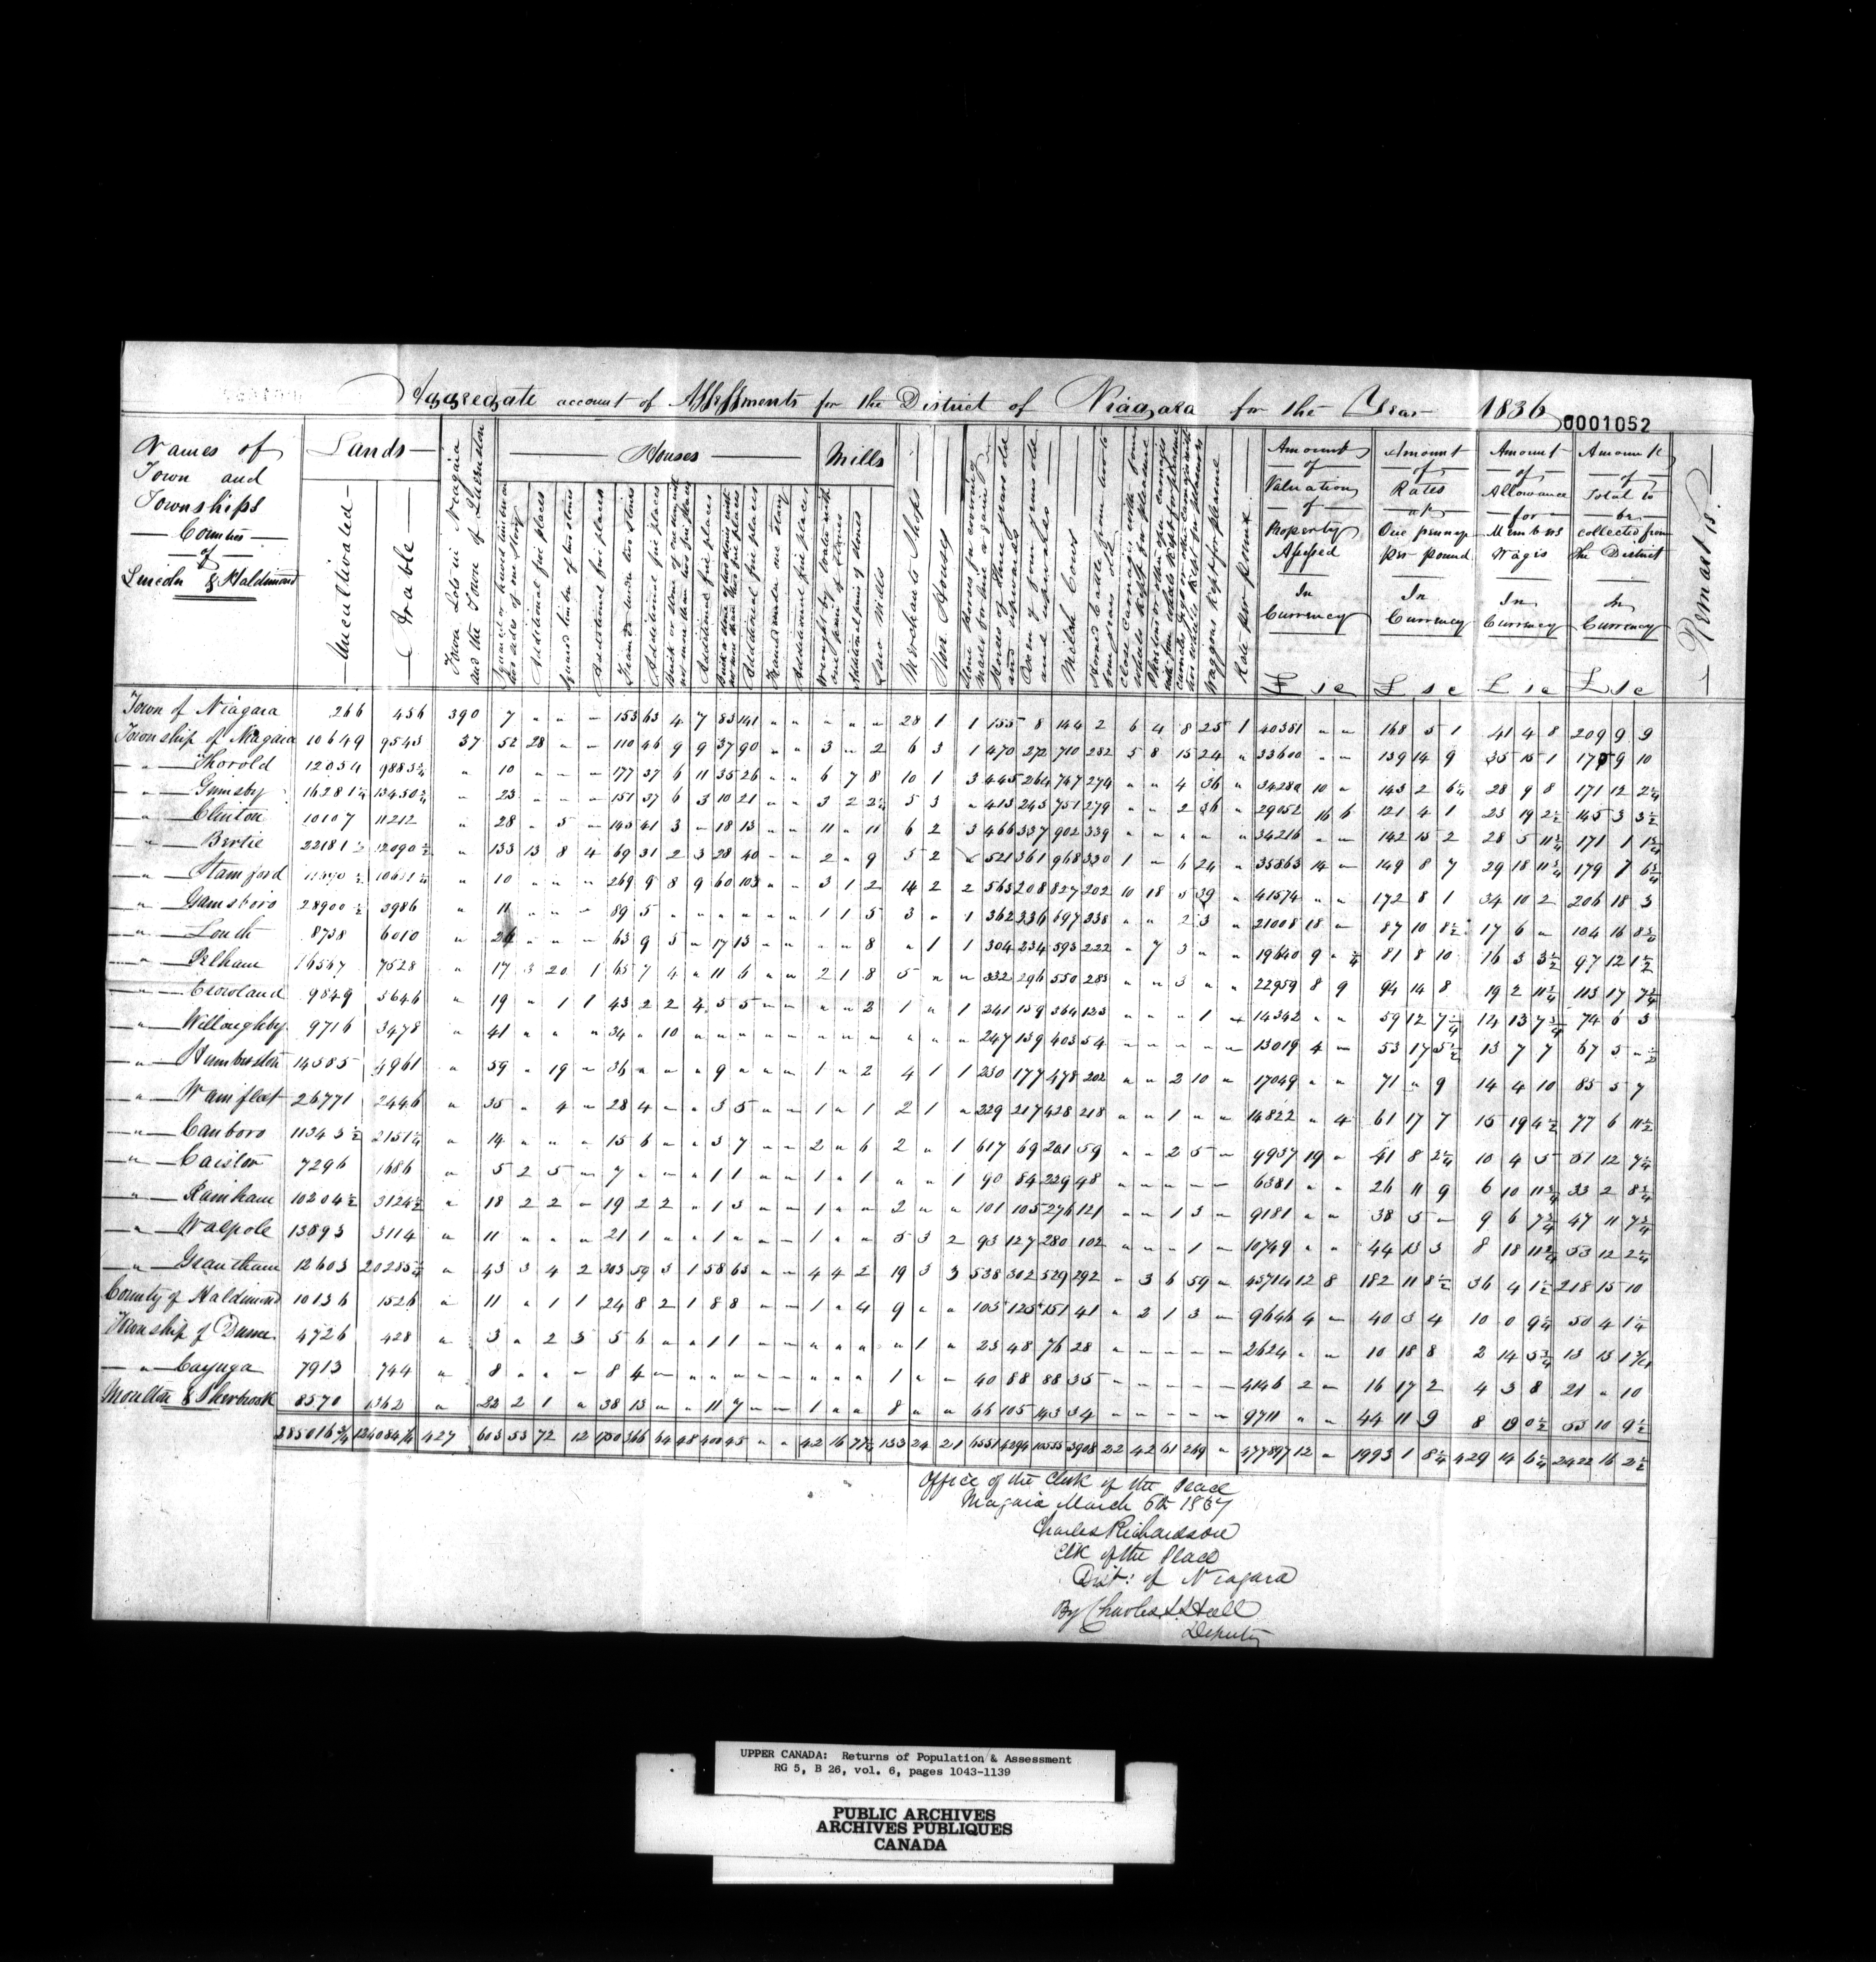 Aggregate account of Assessments for the District of Niagara for the Year 1836
0001052
Names of Town and Townships Counties of Lincoln & Haldimand
Lands
Uncultivated
Arable
Town Lots in Niagara and the Town of Queenston
Houses
Additional fire places
Square timber of two stories
Additional fire places
Framed under two stories
Additional fire places
Additional fire places
Additional fire places
Additional fire places
Mills
Wrought by water with one pair of stones
Additional pairs of stones
Saw Mills
Merchants Shops
Store Houses
Stone Horses for covering Mares for hire or gain
Horses of three years old and upwards
Oxen of four years old and upwards
Milch Cows
Horned Cattle from two to four years old
Close Carriages with four wheels kept for pleasure
Waggons kept for pleasure
Rate per pound
Amount of Valuation of Property Assessed In Currency
Amount of Rates at One penny per pound In Currency
Amount of Allowance for Members Wages In Currency
Amount of Total to be collected from the District In Currency
Remarks
Town of Niagara 266 456 390 7 153 63 4 7 83 141 28 1 1 155 8 144 2 6 4 8 25 1 40381 168 5 1 41 4 8 209 9 9
Township of Niagara 10649 9543 37 52 28 110 46 9 9 37 90 3 2 6 3 1 470 272 710 282 5 8 15 24 33600 139 14 9 35 15 1 175 9 10
Thorold 12034 9883¾ 10 177 37 6 11 35 26 6 7 8 10 1 3 445 264 747 274 4 36 34280 10 143 2 6¼ 28 9 8 171 12 2¼
Grimsby 16281¼ 13450¾ 23 151 37 6 3 10 21 3 2 2½ 5 3 413 243 751 279 2 36 29052 16 6 121 4 1 23 19 2½ 145 3 3½
Clinton 10107 11212 28 5 143 41 3 18 13 11 11 6 2 3 466 337 902 339 34216 142 15 2 28 5 11¾ 171 1 1¾
Bertie 22181½ 12090½ 133 13 8 4 69 31 2 3 28 40 2 9 5 2 521 361 968 330 1 6 24 35863 14 149 8 7 29 18 11¾ 179 7 6¾
Stamford 10 269 9 8 9 60 103 3 1 2 14 2 2 563 208 827 202 10 18 5 39 41574 172 8 1 34 10 2 206 18 3
Gainsboro 28900½ 3986 11 89 5 1 1 5 3 1 362 336 697 338 2 3 21008 18 87 10 8½ 17 6 104 16 8½
Louth 8738 6010 24 63 9 5 17 13 8 1 1 304 234 593 222 7 3 19640 9 81 8 10 16 3 3½ 97 12 1½
Pelham 16567 7528 17 3 20 1 65 7 4 11 6 2 1 8 5 332 296 550 283 3 22959 8 9 94 14 8 19 2 11¾ 113 17 7¾
Crowland 9849 3646 19 1 1 43 2 2 4 5 5 2 1 1 241 159 364 123 1 14342 59 12 7¾ 14 13 7¾ 74 6 3
Willoughby 9716 3478 41 34 10 247 139 403 54 13019 4 53 17 5½ 13 7 7 67 5 ½
Humberston 14585 4961 59 19 36 9 1 2 4 1 1 230 177 478 202 2 10 17049 71 9 14 4 10 85 5 7
Wainfleet 26771 2446 35 4 28 4 3 5 1 1 2 1 229 217 428 218 1 14822 4 61 17 7 15 19 4½ 77 6 11½
Canboro 11343½ 2151¼ 14 15 6 3 7 2 6 2 1 617 69 201 59 2 5 9937 19 41 8 2¼ 10 4 5 51 12 7¼
Caistor 7296 1686 5 2 5 7 1 1 1 1 1 90 84 229 48 6381 26 11 9 6 10 11¾ 33 2 8¾
Rainham 10204½ 3124½ 18 2 2 19 2 2 1 3 1 2 101 105 276 121 1 3 9181 38 5 9 6 7¾ 47 11 7¾
Walpole 13893 3114 11 21 1 1 1 5 3 2 93 127 280 102 1 10749 44 13 3 8 18 11¾ 53 12 2¼
Grantham 12603 20285¼ 43 3 4 2 303 59 3 1 58 65 4 4 2 19 3 3 538 302 529 292 3 6 59 43714 12 8 182 11 8½ 36 4 1½ 218 15 10
County of Haldimand 10136 1526 11 1 1 24 8 2 1 8 8 1 4 9 103 125 151 41 2 1 3 9646 4 40 3 4 10 0 9¼ 50 4 1¼
Township of Dunn 4726 428 3 2 3 5 6 1 1 1 23 48 76 28 2624 10 18 8 2 14 5¾ 13 13 1¾
Cayuga 7913 744 8 8 4 1 40 88 88 35 4146 2 16 17 2 4 3 8 21 10
Moulton & Sherbrook 8570 1362 22 2 1 38 13 11 7 1 8 66 105 143 34 9711 44 11 9 8 19 0½ 53 10 9½
285016¾ 124084¼ 427 603 53 72 12 1750 366 64 48 400 45 42 16 77½ 133 24 21 6551 4294 10555 3908 22 42 61 269 477897 12 1993 1 8¼ 429 14 6¼ 2422 16 2½
Office of the Clerk of the Peace
Niagara March 6th 1837
Charles Richardson
Clk of the Peace
Dist: of Niagara
By Charles L. Hall
Deputy
UPPER CANADA: Returns of Population & Assessment
RG 5, B 26, vol. 6, pages 1043-1139
PUBLIC ARCHIVES
ARCHIVES PUBLIQUES
CANADA